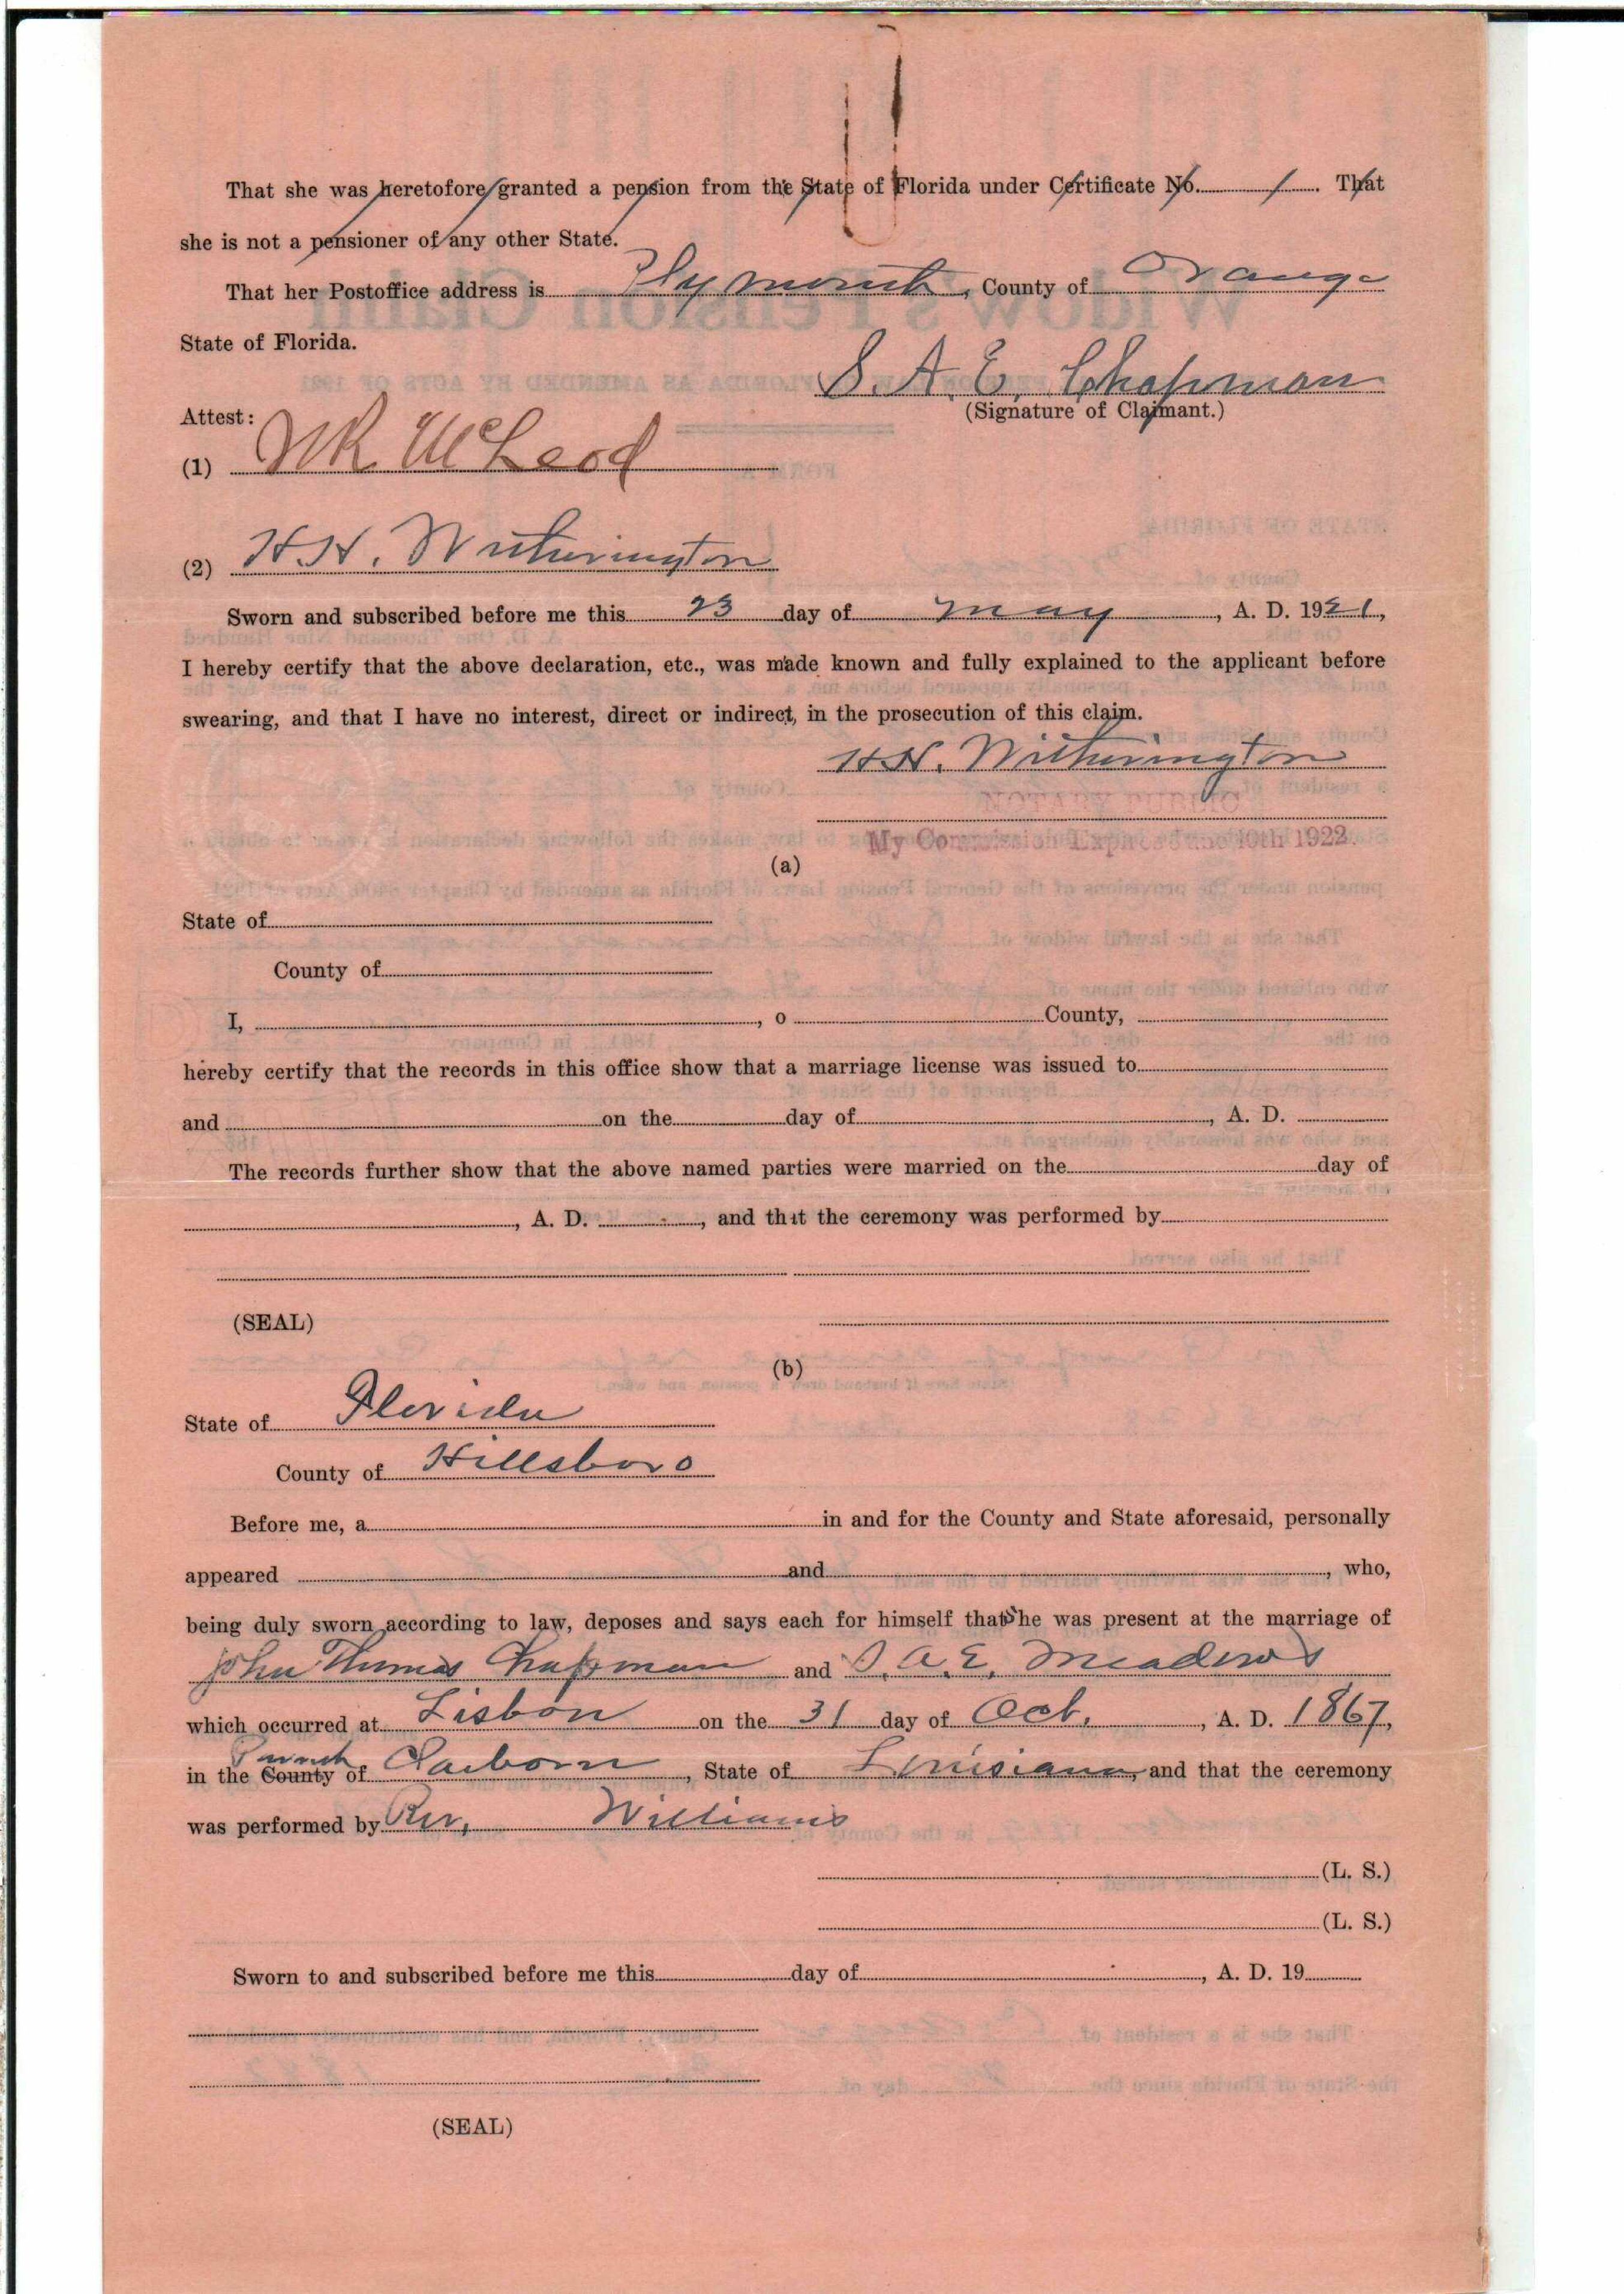 That she was heretofore granted a pension from the State of Florida under Certificate No. / . That
she is not a pensioner of any other State.
That her Postoffice address is Plymouth, County of Orange
State of Florida.
S. A. E. Chapman
(Signature of Claimant.)
Attest:
(1) McLeod
(2) H. H. Witherington
Sworn and subscribed before me this 23 day of May, A. D. 1921,
I hereby certify that the above declaration, etc., was made known and fully explained to the applicant before
swearing, and that I have no interest, direct or indirect, in the prosecution of this claim.
H. H. Witherington
NOTARY PUBLIC
My Commission Expires June 10th 1922.
(a)
State of
County of
I, , o County,
hereby certify that the records in this office show that a marriage license was issued to
and on the day of , A. D.
The records further show that the above named parties were married on the day of
, A. D. , and that the ceremony was performed by
(SEAL)
(b)
State of Florida
County of Hillsboro
Before me, a in and for the County and State aforesaid, personally
appeared and , who,
being duly sworn according to law, deposes and says each for himself that she was present at the marriage of
John Thomas Chapman and S. A. E. Meadows
which occurred at Lisbon on the 31 day of Oct., A. D. 1867,
in the County of Claiborn, State of Louisiana, and that the ceremony
was performed by Rev. Williams
(L. S.)
(L. S.)
Sworn to and subscribed before me this day of , A. D. 19
(SEAL)